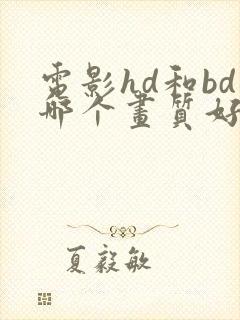 電影hd和bd
哪个畫質好
夏毅敏